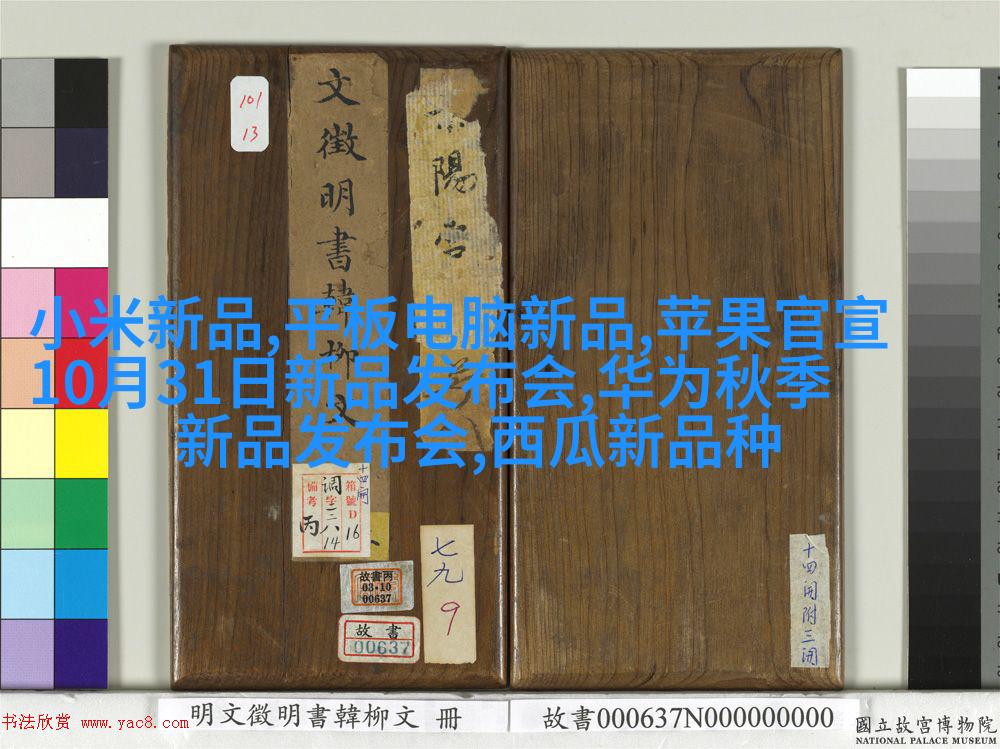 小米新品,平板电脑新品,苹果官宣
10月31日新品发布会,华为秋季
新品发布会,西瓜新品种
101
13
文徵明書韓柳文
陽宮
十四開
備考
調字三八
14
箱號D
16
丙
故書丙
03-10
00637
故書
00637
七九
9
十四開附三開
明文徵明書韓柳文 冊
故書000637N000000000
書法欣赏 www.yac8.com
國立故宮博物院
NATIONAL PALACE MUSEUM